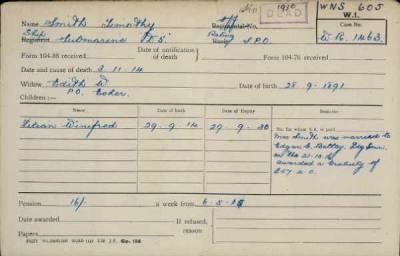 WNS 605
W.I.
Name Smith Timothy
Off
Regimental No.
DEAD
Case No.
Ship
Regiment Submarine "D.5"
Rating
Rank S.P.O.
W.R. 1463.
Form 104-88 received
Date of notification of death
Form 104-76 received
Date and cause of death 3-11-14
Widow, Edith W Date of birth 28-9-1891
Children:— P.O. Esher.
Name Date of Birth Date of Expiry Remarks.
Winifred 29-9-14 29-9-30
No. for whom S.A. is paid
Mrs Smith was married to
Edgar C. Battey
on the 21-10-
awarded a Gratuity of
Pension 16/- a week from 6-5-15
Date awarded
If refused, reason
Papers